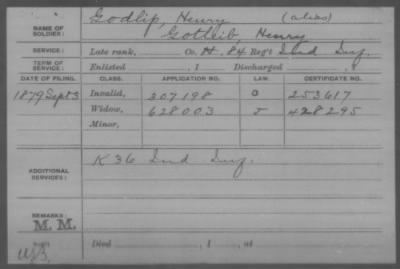 Godlip, Henry (alias)
NAME OF SOLDIER: Gotleib, Henry
SERVICE: Late rank, Co. H. 84 Reg't Ind Inf.
TERM OF SERVICE: Enlisted , 1 Discharged , 1
DATE OF FILING. CLASS. APPLICATION NO. LAW. CERTIFICATE NO.
1879 Sept 3 Invalid, 307198 G 253617
Widow, 628003 J 428295
Minor,
ADDITIONAL SERVICES: K 36 Ind Inf.
REMARKS:
M. M.
Died , 1 , at